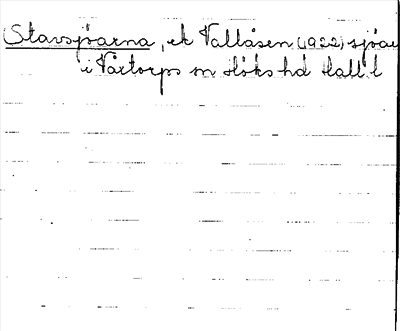 Stavsjöarna, ek Vallåsen (1922) sjöar
i Våxtorps sn Höks hd Hall l